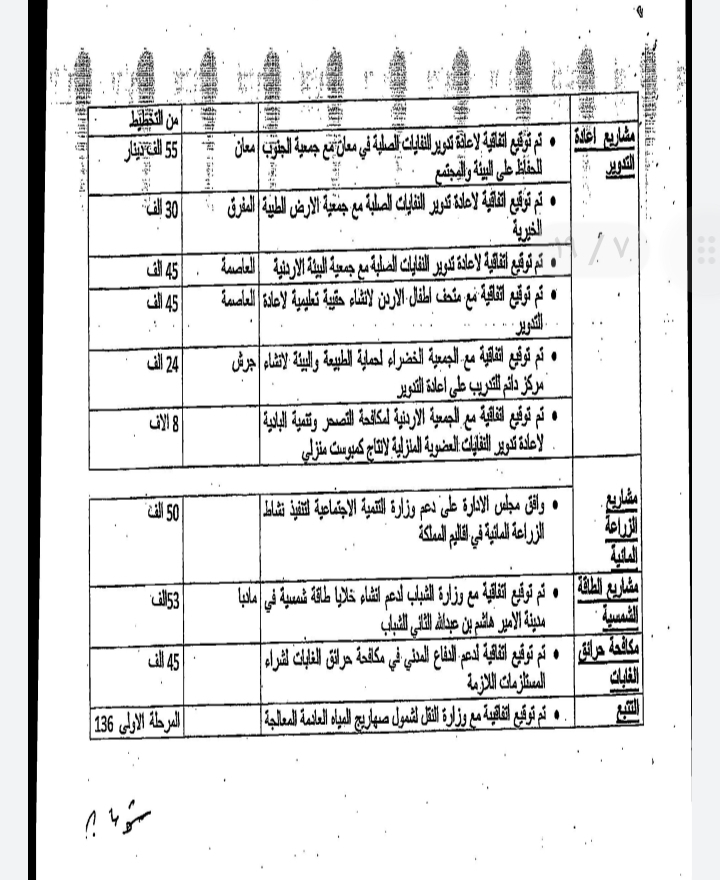 من التخطيط
مشاريع اعادة
التدوير
• تم توقيع اتفاقية لاعادة تدوير النفايات الصلبة في معان مع جمعية الجنوب
للحفاظ على البيئة والمجتمع
معان
55 الف دينار
• تم توقيع اتفاقية لاعادة تدوير النفايات الصلبة مع جمعية الارض الطيبة
الخيرية
المفرق
30 الف
• تم توقيع اتفاقية لاعادة تدوير النفايات الصلبة مع جمعية البيئة الاردنية
العاصمة
45 الف
• تم توقيع اتفاقية مع متحف اطفال الاردن لانشاء حقيبة تعليمية لاعادة
التدوير
العاصمة
45 الف
• تم توقيع اتفاقية مع الجمعية الخضراء لحماية الطبيعة والبيئة لانشاء
مركز دائم للتدريب على اعادة التدوير
جرش
24 الف
• تم توقيع اتفاقية مع الجمعية الاردنية لمكافحة التصحر وتنمية البادية
لاعادة تدوير النفايات العضوية المنزلية لانتاج كمبوست منزلي
8 الاف
مشاريع
الزراعة
المائية
• وافق مجلس الادارة على دعم وزارة التنمية الاجتماعية لتنفيذ نشاط
الزراعة المائية في اقاليم المملكة
50 الف
مشاريع الطاقة
الشمسية
• تم توقيع اتفاقية مع وزارة الشباب لدعم انشاء خلايا طاقة شمسية في
مدينة الامير هاشم بن عبدالله الثاني للشباب
مادبا
53الف
مكافحة حرائق
الغابات
• تم توقيع اتفاقية لدعم الدفاع المدني في مكافحة حرائق الغابات لشراء
المستلزمات اللازمة
45 الف
التتبع
• تم توقيع اتفاقيية مع وزارة النقل لشمول صهاريج المياه العادمة المعالجة
المرحلة الاولى 136
٧ / ١٩